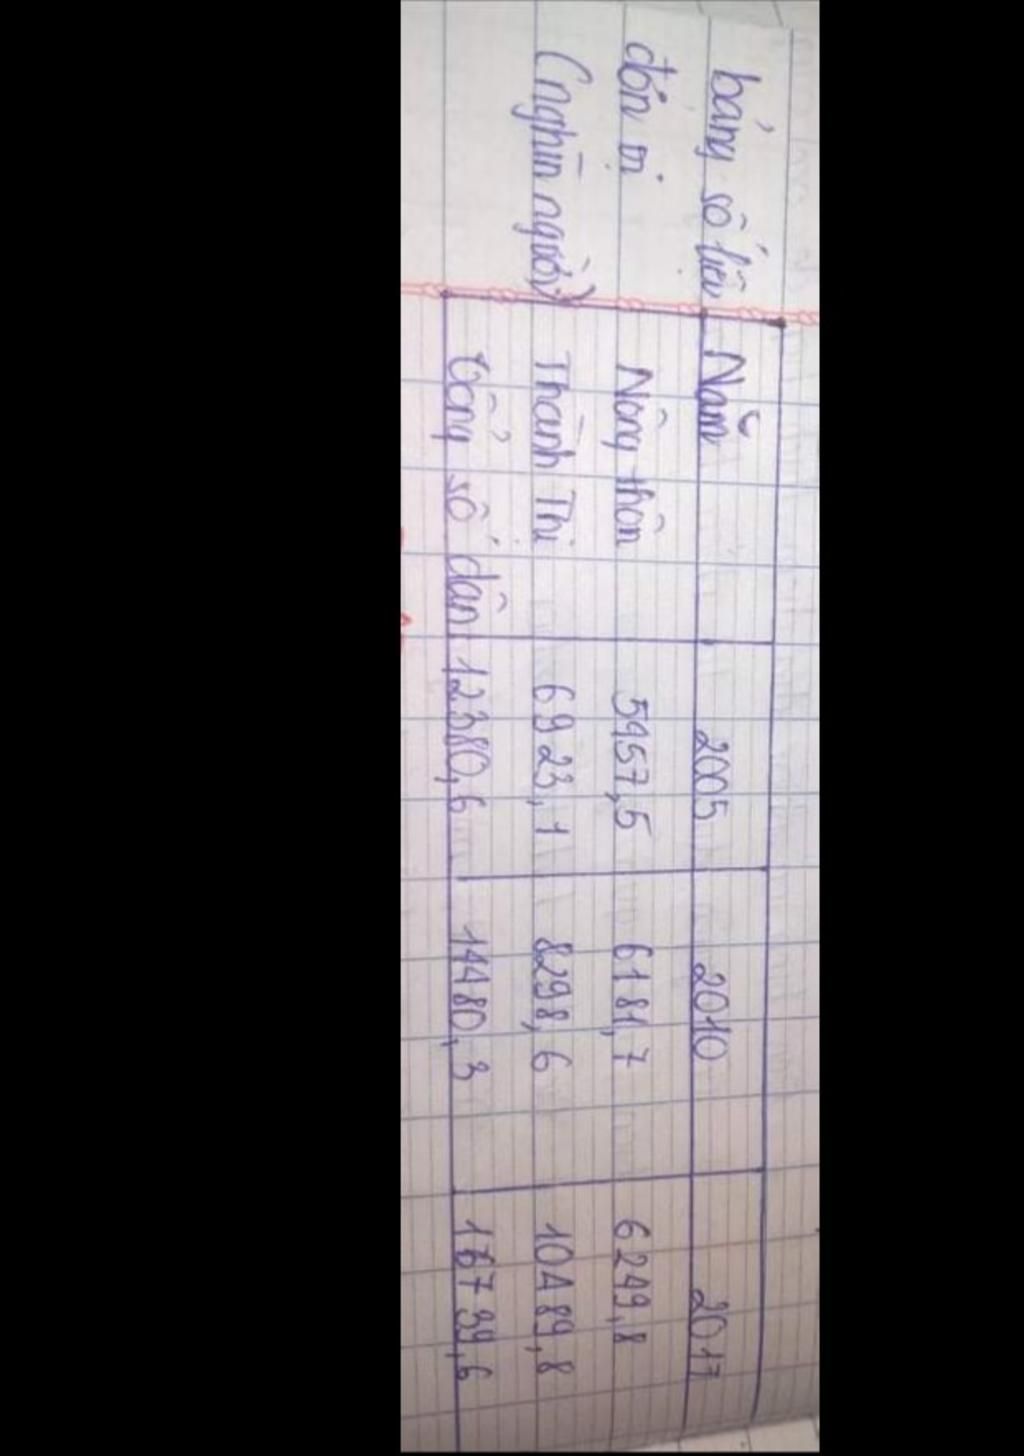 bảng số liệu
đơn vị
(nghìn người)
Năm 2005 2010 2017
Nông thôn 5457,5 6181,7 6249,8
Thành Thị 6923,1 8298,6 10489,8
tổng số dân 12380,6 14480,3 16739,6